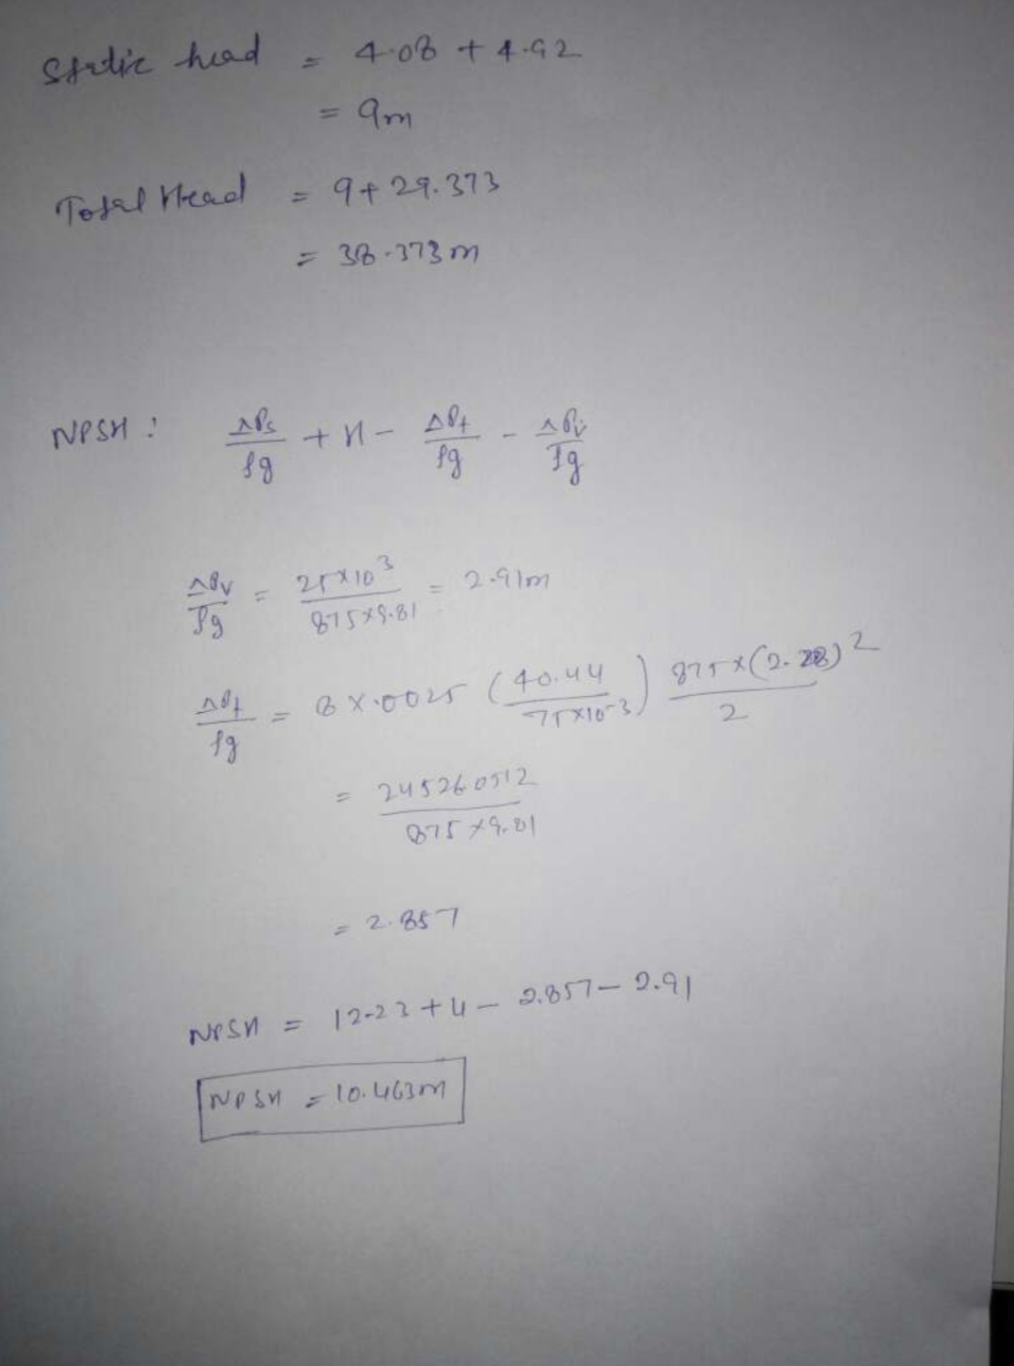 Static head = 4.08 + 4.92
= 9m
Total Head = 9 + 29.373
= 38.373 m
NPSH : ΔPs/ρg + H - ΔPf/ρg - ΔPv/ρg
ΔPv/ρg = 25×10^3/875×9.81 = 2.91m
ΔPf/ρg = 8 × .0025 (40.44/75×10^-3) 875×(2.28)^2/2
= 24526.0512/875×9.81
= 2.857
NPSH = 12.23 + 4 - 2.857 - 2.91
NPSH = 10.463m